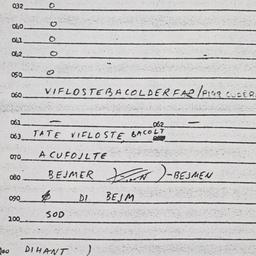 032 0
040 0
041 0
042 0
050 0
060 VIFLOSTEBACOLDERFAR/
061 — 062 —
063 TATE VIFLOSTE BACOLT
070 ACUFOJLTE
080 BEJMER )-BEJMEN
090 DI BEJM
100 SOD
DIHANT )